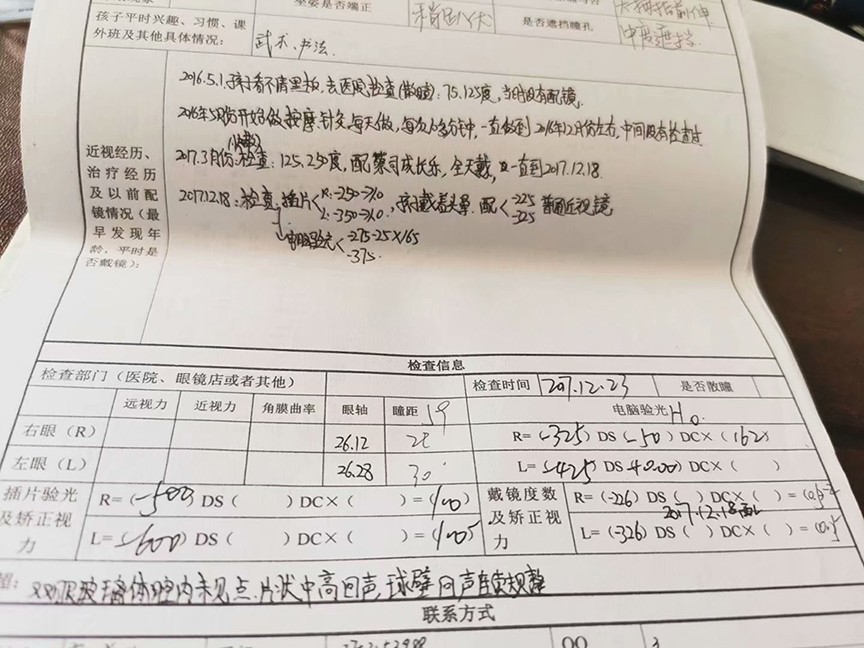 坐姿是否端正 稍趴伏 是否遮挡瞳孔 中度遮挡
孩子平时兴趣、习惯、课外班及其他具体情况: 武术、书法.
近视经历、治疗经历及以前配镜情况(最早发现年龄,平时是否戴镜):
2016.5.1.孩子看不清黑板,去医院检查(散瞳):75.125度,当时没有配镜.
2016年5月份开始做按摩.针灸,每天做,每次 多分钟,一直做到2016年12月份左右,中间没有检查过
2017.3月份:检查:125、250度,配 成长乐,全天戴,一直到2017.12.18.
2017.12.18:检查.插片 R:-250→1.0 L:-350→1.0,孩子戴着头晕.配 -225 -325 普通近视镜
电脑验光 -275-25×165 -375.
检查信息
检查部门(医院、眼镜店或者其他) 检查时间 2017.12.23 是否散瞳
远视力 近视力 角膜曲率 眼轴 瞳距 59 电脑验光
右眼(R) 26.12 R=(-325)DS(-50)DC×(162)
左眼(L) 26.28 30 L=(-425)DS )DC×( )
插片验光及矫正视力 R=(-500)DS( )DC×( )=( ) 戴镜度数及矫正视力 R=(-226)DS( )DC×( )=(
L=(-600)DS( )DC×( )=( ) 2017.12.18 L=(-326)DS( )DC×( )=(0.5
超: 双眼玻璃体腔内未见点.片状中高回声,球壁回声连续规整
联系方式
QQ